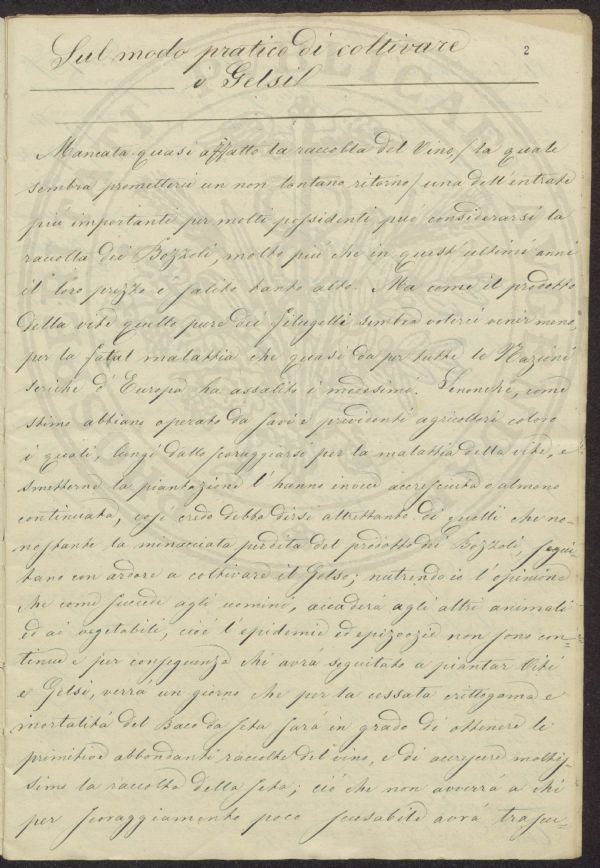 Sul modo pratico di coltivare
2
i Gelsi
Mancata quasi affatto la raccolta del Vino/ la quale
sembra promettersi un non lontano ritorno/ una dell'entrate
più importanti per molti possidenti può considerarsi la
raccolta dei Bozzoli, molto più che in quest'ultimi anni
il loro prezzo è salito tanto alto. Ma come il prodotto
della vite quello pure dei filugelli sembra volerci venir meno,
per la fatal malattia che quasi da per tutte le Nazioni
seriche d'Europa ha assalito i medesimi. Senonchè, come
stimo abbiano operato da savi e previdenti agricoltori coloro
i quali, lungi dallo scoraggiarsi per la malattia della vite, e
smetterne la piantagione l'hanno invece accresciuta o almeno
continuata, così credo debba dirsi altrettanto di quelli che no-
nostante la minacciata perdita del prodotto dei Bozzoli, segui-
tano con ardore a coltivare il Gelso; nutrendo io l'opinione
che come succede agli uomini, accaderà agli altri animali
ed ai vegetabili, cioè l'epidemie ed epizoozie non sono con-
tinue e per conseguenza chi avrà seguitato a piantar Viti
e Gelsi, verrà un giorno che per la cessata crittogama e
mortalità del Baco da seta sarà in grado di ottenere le
primitive abbondanti raccolte del vino, e di accrescere moltis-
simo la raccolta della seta; ciò che non avverrà a chi
per scoraggiamento poco scusabile avrà trascu-